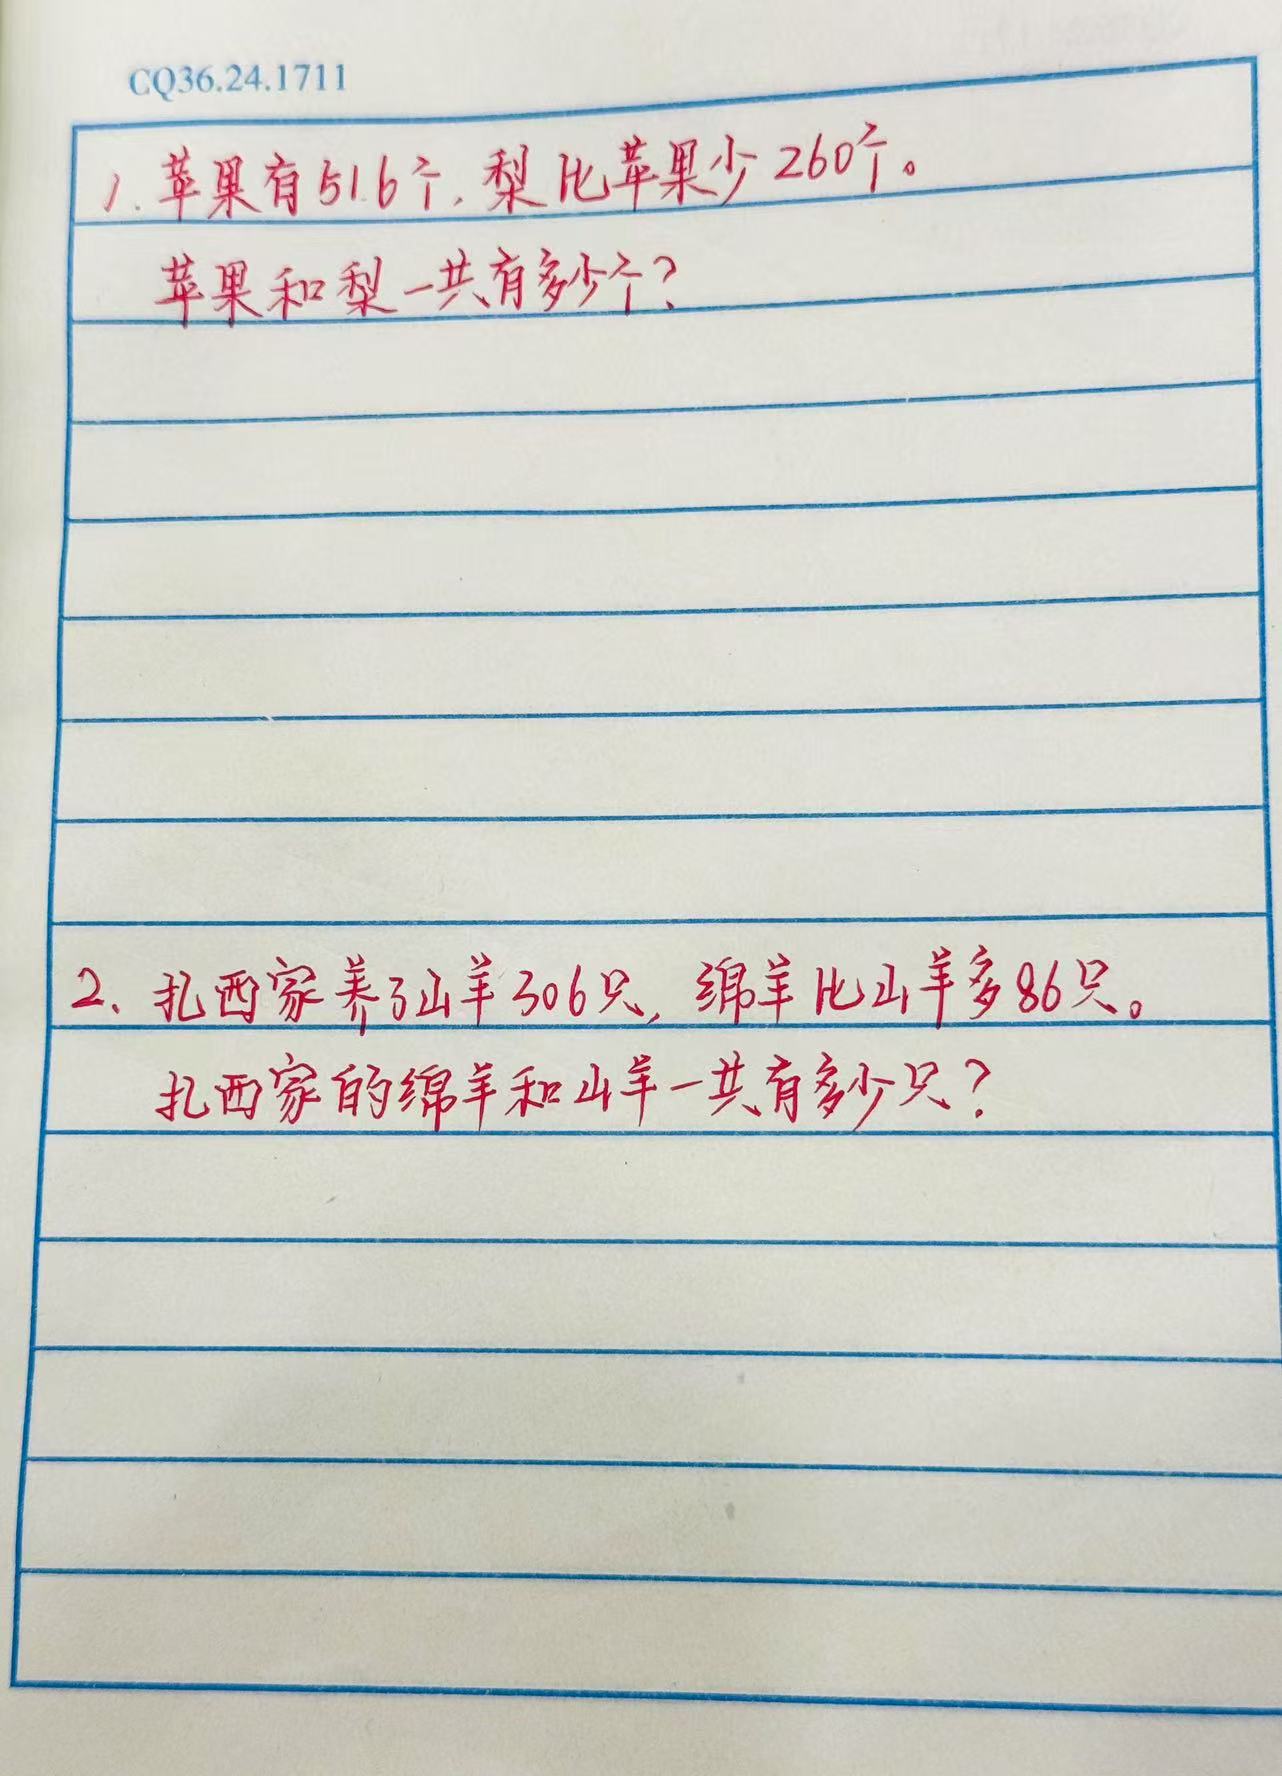 CQ36.24.1711
1. 苹果有516个，梨比苹果少260个。
苹果和梨一共有多少个？
2、扎西家养了山羊306只，绵羊比山羊多86只。
扎西家的绵羊和山羊一共有多少只？